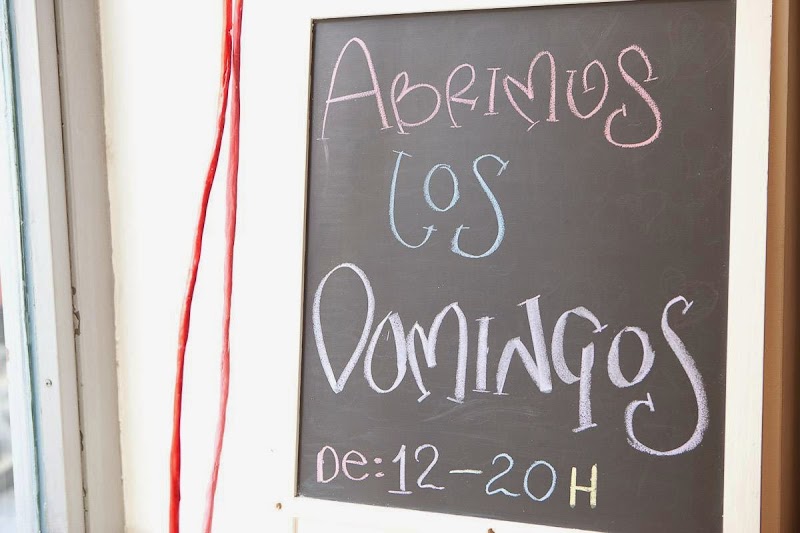 ABRIMOS
LOS
DOMINGOS
DE: 12-20H